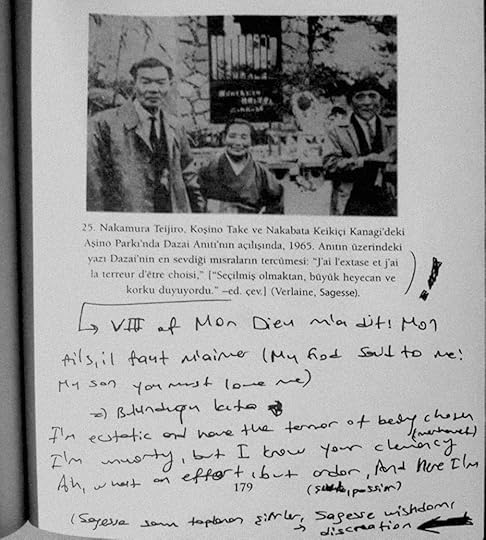 25. Nakamura Teijiro, Koşino Take ve Nakabata Keikiçi Kanagi'deki
Aşino Parkı'nda Dazai Anıtı'nın açılışında, 1965. Anıtın üzerindeki
yazı Dazai'nin en sevdiği mısraların tercümesi: “J'ai l'extase et j'ai
la terreur d'être choisi,” [“Seçilmiş olmaktan, büyük heyecan ve
korku duyuyordu.” –ed. çev.] (Verlaine, Sagesse).
!
↳ VIII of Mon Dieu m'a dit: Mon
fils, il faut m'aimer (My God said to me:
My son you must love me)
=) Bulunduğu kıta
I'm ecstatic and have the terror of being chosen
I'm unworthy, but I know your clemency
Ah, what an effort, but ardor, And Here I'm
179
(Sagesse şiirler, Sagesse wishdom,
→ discreation